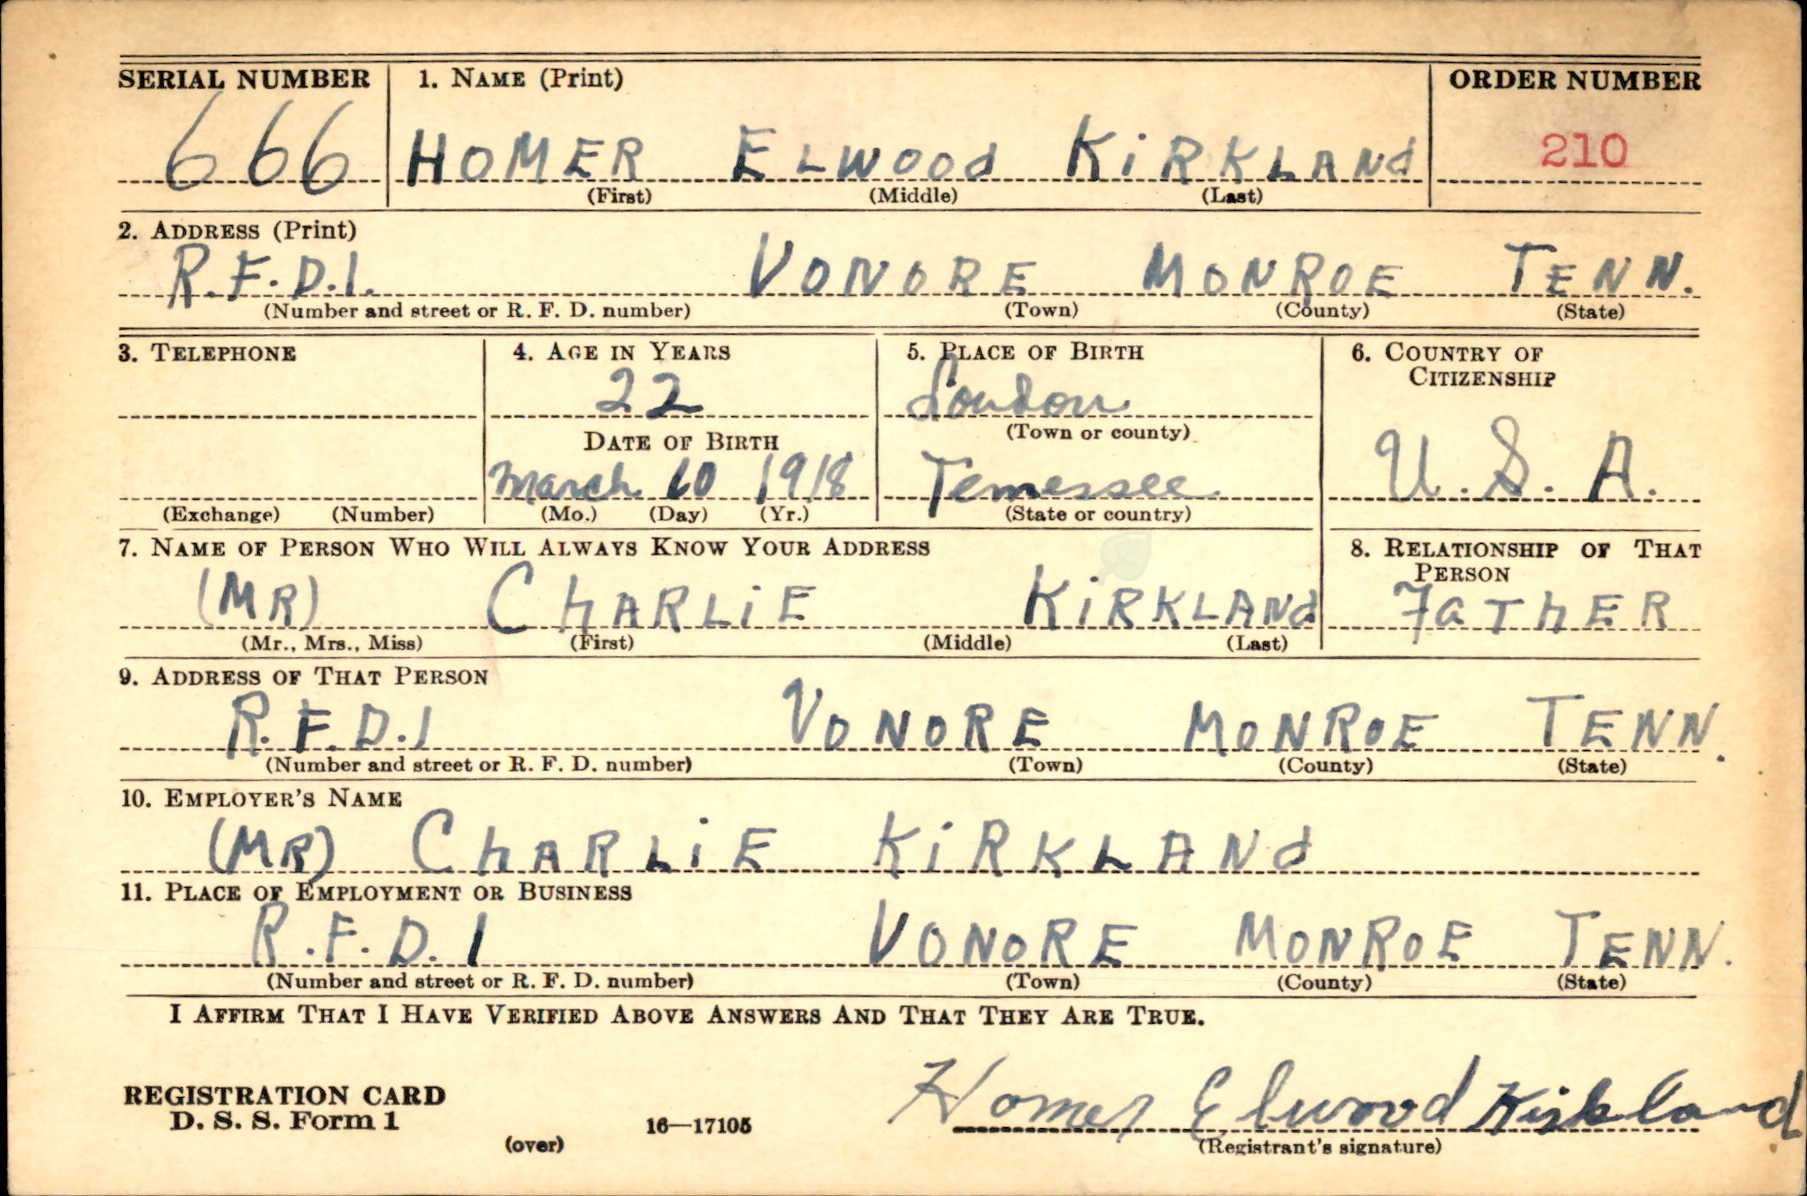 SERIAL NUMBER 1. NAME (Print) ORDER NUMBER
666 HOMER ELWOOd KiRKLANd 210
(First) (Middle) (Last)
2. ADDRESS (Print)
R.F.D.1. VONORE MONROE TENN.
(Number and street or R. F. D. number) (Town) (County) (State)
3. TELEPHONE 4. AGE IN YEARS 5. PLACE OF BIRTH 6. COUNTRY OF CITIZENSHIP
22 Loudon
DATE OF BIRTH (Town or county)
March 10 1918 Tennessee U.S.A.
(Exchange) (Number) (Mo.) (Day) (Yr.) (State or country)
7. NAME OF PERSON WHO WILL ALWAYS KNOW YOUR ADDRESS 8. RELATIONSHIP OF THAT PERSON
(MR) ChARLiE KiRKLANd FaThER
(Mr., Mrs., Miss) (First) (Middle) (Last)
9. ADDRESS OF THAT PERSON
R.F.D.1 VONORE MONROE TENN.
(Number and street or R. F. D. number) (Town) (County) (State)
10. EMPLOYER'S NAME
(MR) ChARLiE KiRKLANd
11. PLACE OF EMPLOYMENT OR BUSINESS
R.F.D.1 VONORE MONROE TENN.
(Number and street or R. F. D. number) (Town) (County) (State)
I AFFIRM THAT I HAVE VERIFIED ABOVE ANSWERS AND THAT THEY ARE TRUE.
REGISTRATION CARD
D. S. S. Form 1 16—17105 Homer Elwood Kirkland
(over) (Registrant's signature)